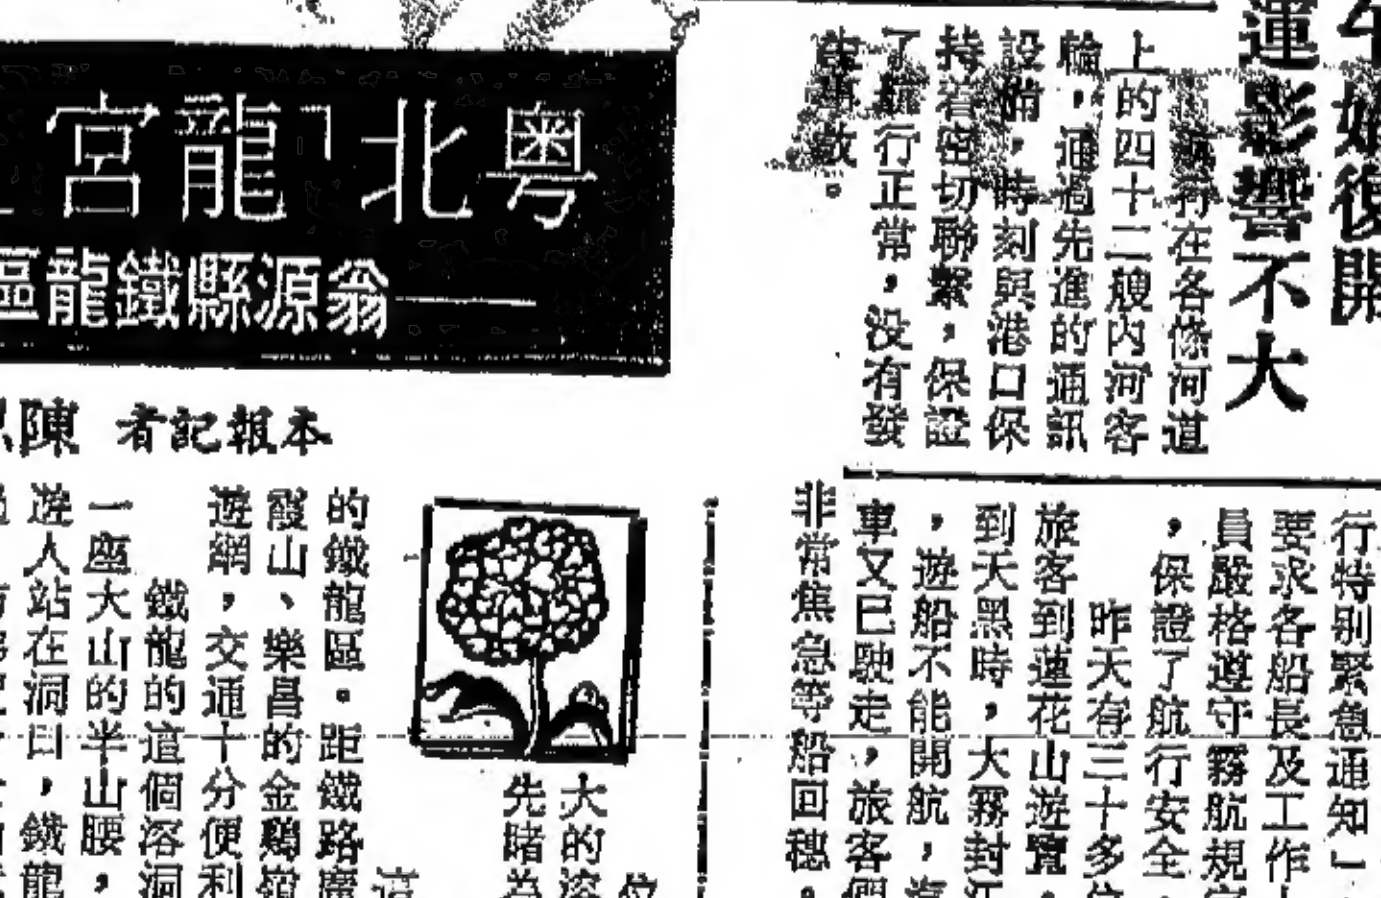 始復開
運影響不大
行在各條河道
上的四十二艘内河客
輪，通過先進的通訊
設備，時刻與港口保
持着密切聯繫，保證
了航行正常，没有發
故。
行特别緊急通知」
要求各船長及工作
員嚴格遵守霧航規
，保證了航行安全。
昨天有三十多位
旅客到蓮花山遊覽，
到天黑時，大霧封江
，遊船不能開航，汽
車又已駛走，旅客們
非常焦急等船回穗。
粤北「龍宮
——翁源縣鐵龍區
本報記者 陳
位
大的溶
先睹為
這
的鐵龍區。距鐵路廣
霞山、樂昌的金鷄嶺
遊網，交通十分便利
鐵龍的這個溶洞
一座大山的半山腰，
遊人站在洞口，鐵龍